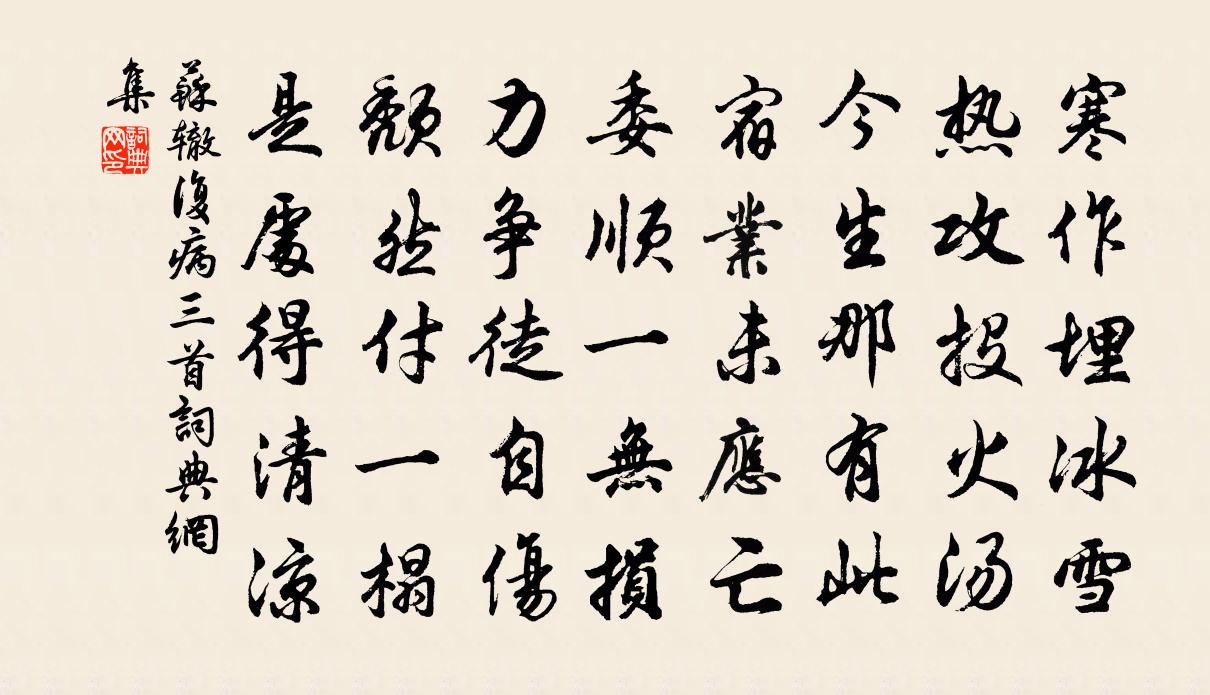 寒作埋冰雪
热攻投火汤
今生那有此
宿業未應亡
委順一無損
力争徒自傷
頹然付一榻
是處得清涼
蘇辙復病三首詞典網
集
詞典网印